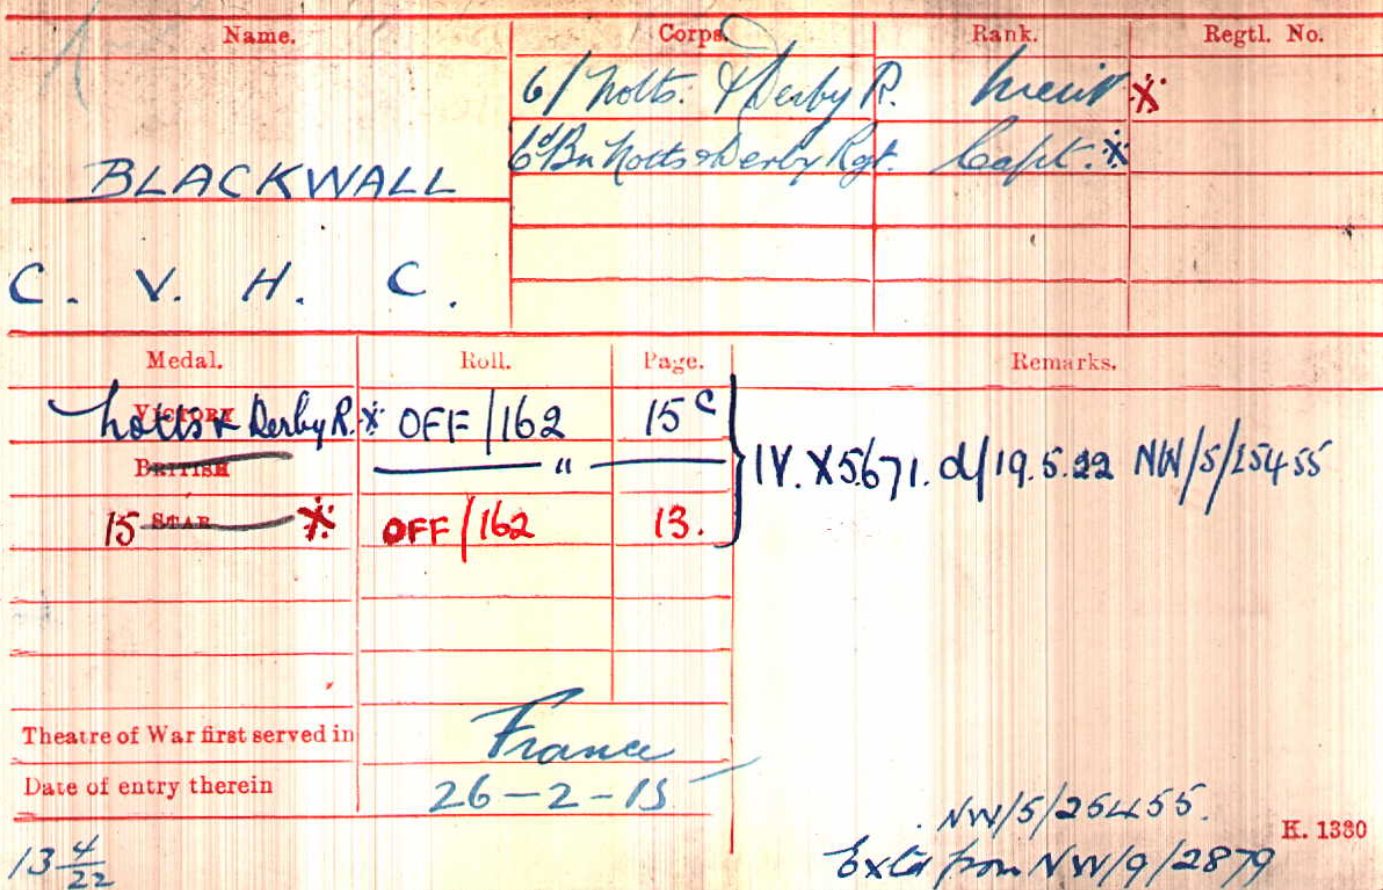 Name. Corps. Rank. Regtl. No.
6/ Notts. & Derby R. Lieut X
6th Bn Notts & Derby Regt. Capt. X
BLACKWALL
C. V. H. C.
Medal. Roll. Page. Remarks.
VICTORY Notts & Derby R. X OFF/162 15 C
BRITISH " IV. X5671. d/19.5.22
15 STAR X OFF/162 13.
Theatre of War first served in France
Date of entry therein 26-2-15
NW/5/25455.
K. 1380
13 4/22 from NW/9/2879